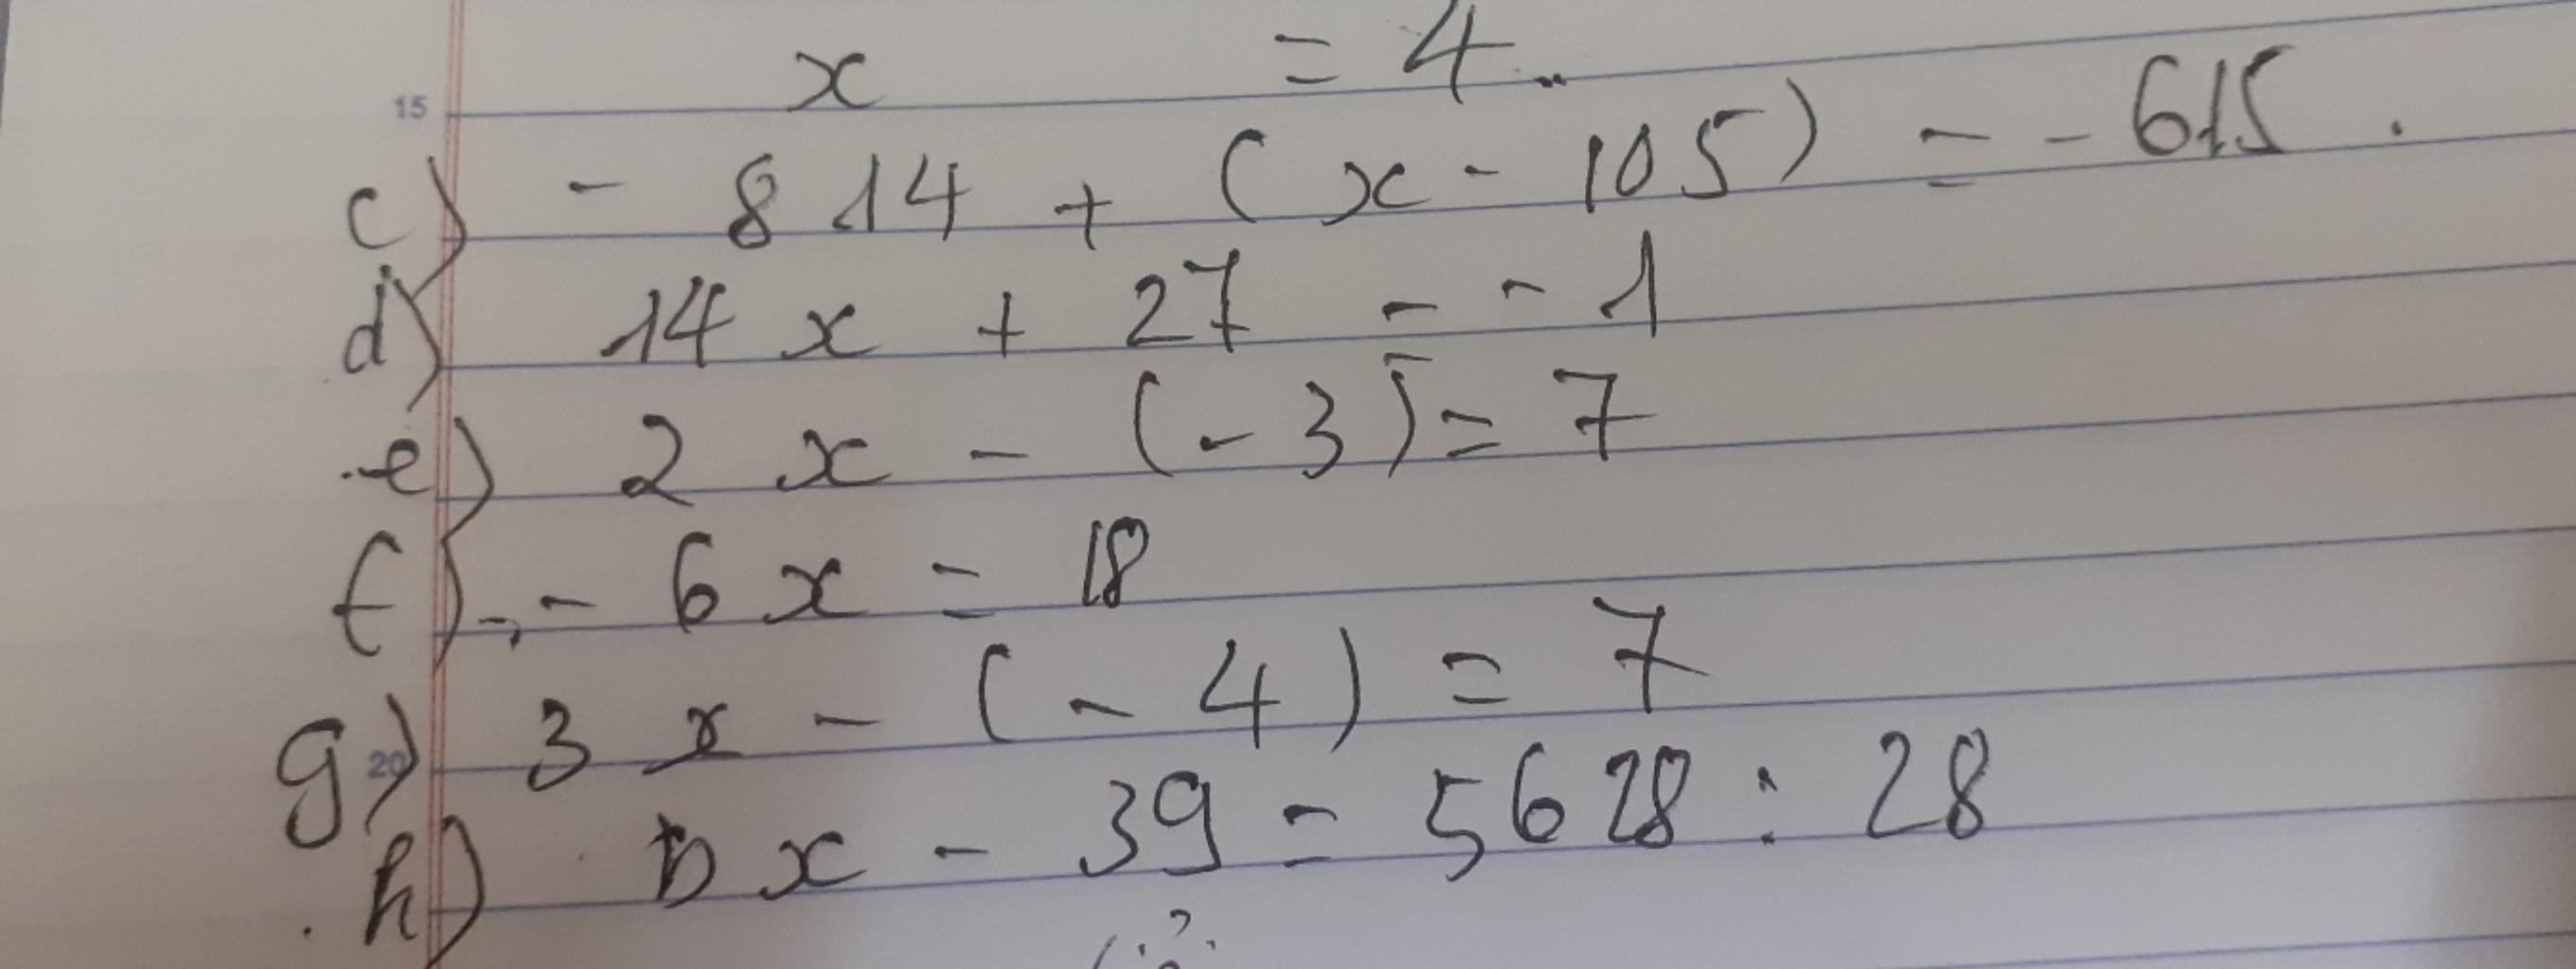 x = 4.
15
c) - 814 + (x - 105) = - 615.
d) 14 x + 27 = - 1
e) 2 x - (- 3) = 7
f) - 6 x = 18
g) 3 x - (- 4) = 7
20
h) x - 39 = 5628 : 28